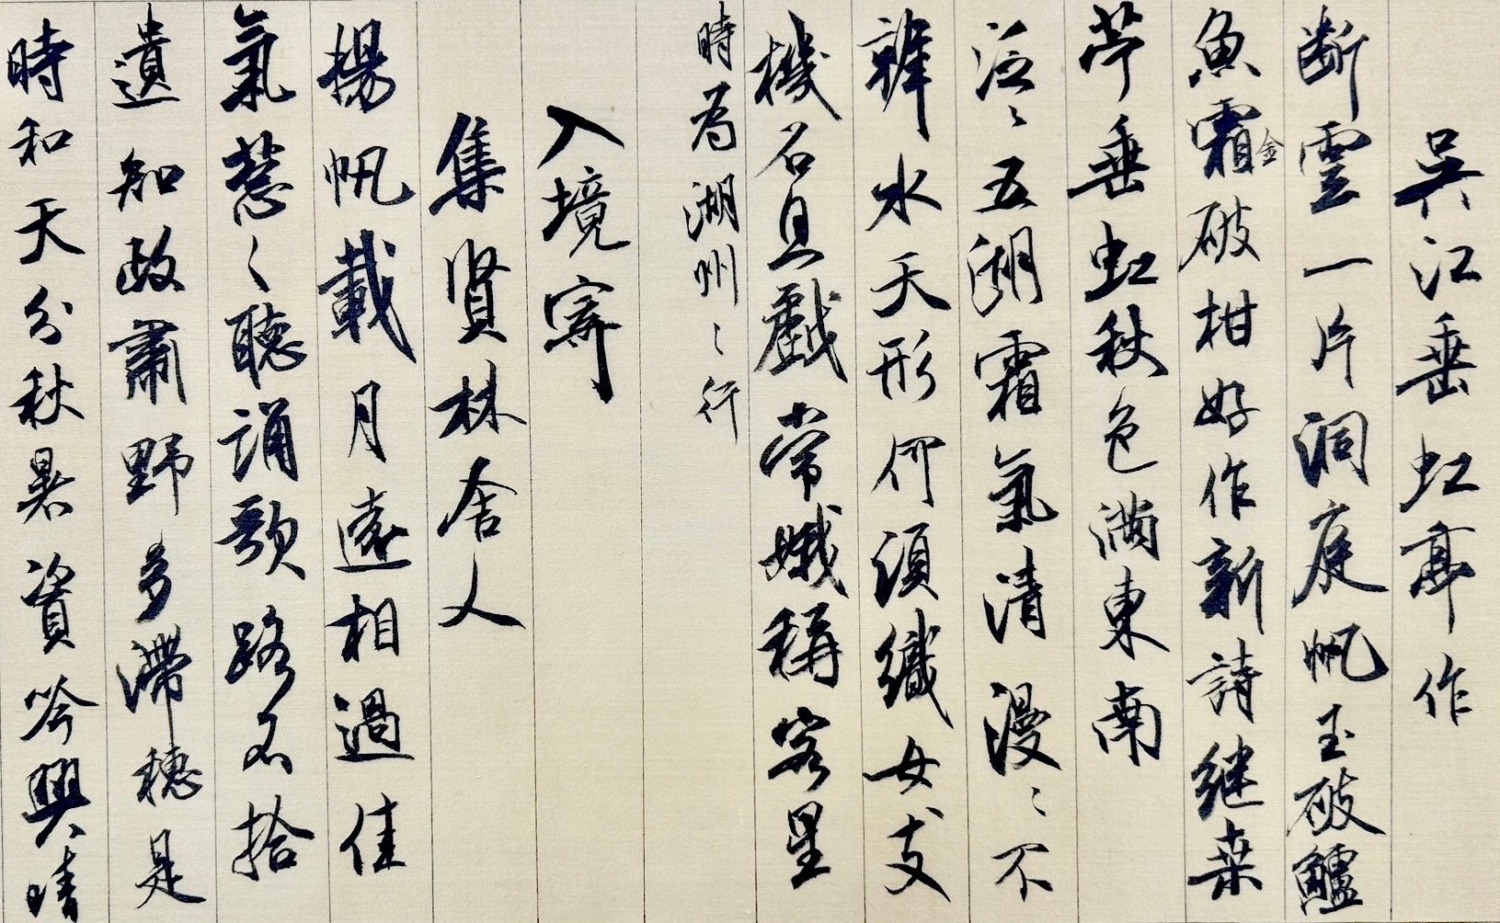 吳江垂虹亭作
断雲一片洞庭帆玉破鱸
魚霜金破柑好作新詩継桒
苧垂虹秋色満東南
泛〻五湖霜氣清漫〻不
辨水天形何須織女支
機石且戲常娥稱客星
時為湖州〻行
入境寄
集賢林舍人
揚帆載月遠相過佳
氣蔥〻聽誦歌路不拾
遺知政肅野多滯穗是
時和天分秋暑資吟興晴